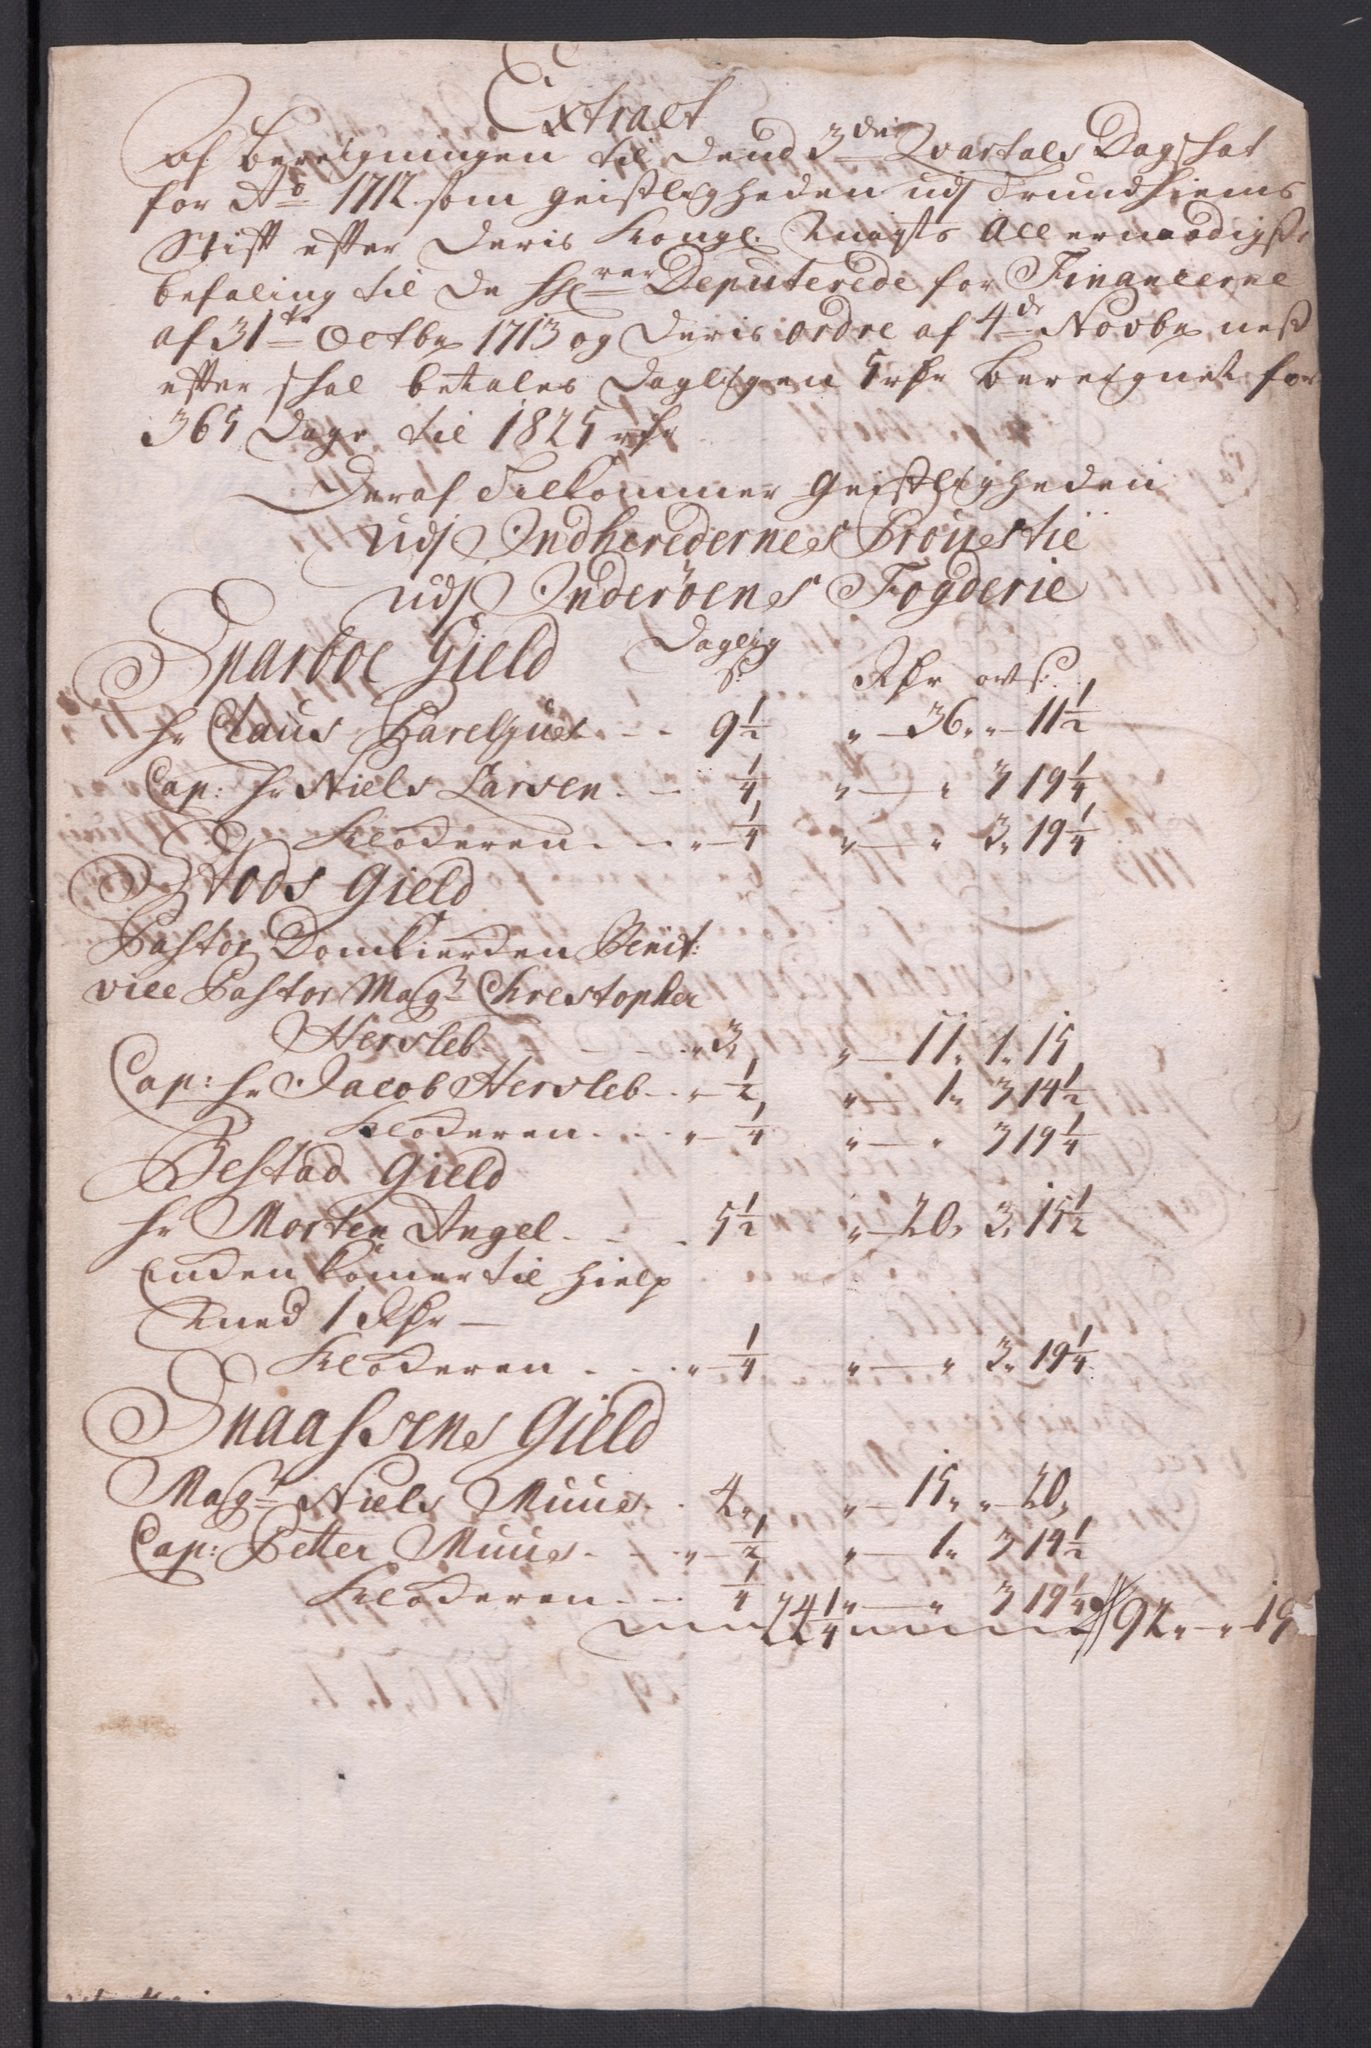 Extract
af beregningen til dend 3de Qvartals Dagschat
for Ao 1712 som geistligheden udj Trundhiems
Stift efter deris Kongl. Mayts Allernaadigste
befaling til de HHerrer Deputerede for Financerne
af 31te Octbr 1713 og deris ordre af 4de Novbr nest
efter schal betales Dagligen 5 rdr beregnet for
365 Dage til 1825 rdr
Deraf Tilkommer Geistligheden
udj Indherredernes Proustie
udj Inderöens Fogderie
Sparboe Gield Daglig
s: Rdr ort s:
hr Claus Parelius - - 9½ " — 36 " " — 11½
Cap: hr Niels Larsen. — ¼ " — " 3 19¼
Klockeren. - - " — ¼ " — " 3 " 19¼
Stods Gield
Pastor Domkierken Benif:
vice Pastor Magr Christopher
Hersleb - - - " 3 " " — 11 " 1 " 15
Cap: hr Jacob Hersleb - " — ½ " — 1 " 3 14½
Klockeren - - - " — ¼ " — " 3 19¼
Bestad Gield
hr Morten Angel - - - 5½ " — 20 " 3 " 15½
Enden komer til hielp
med 1 Rdr —
Klockeren - - - " — ¼ " — " 3 " 19¼
Snaasens Gield
Magr Niels Muus - 4 " " — 15 " " — 20 "
Cap: Petter Muus - - " — ½ " — 1 " 3 14½
Klockeren - - ¼ " — " 3 19¼
24¼ 92 " — " — 19